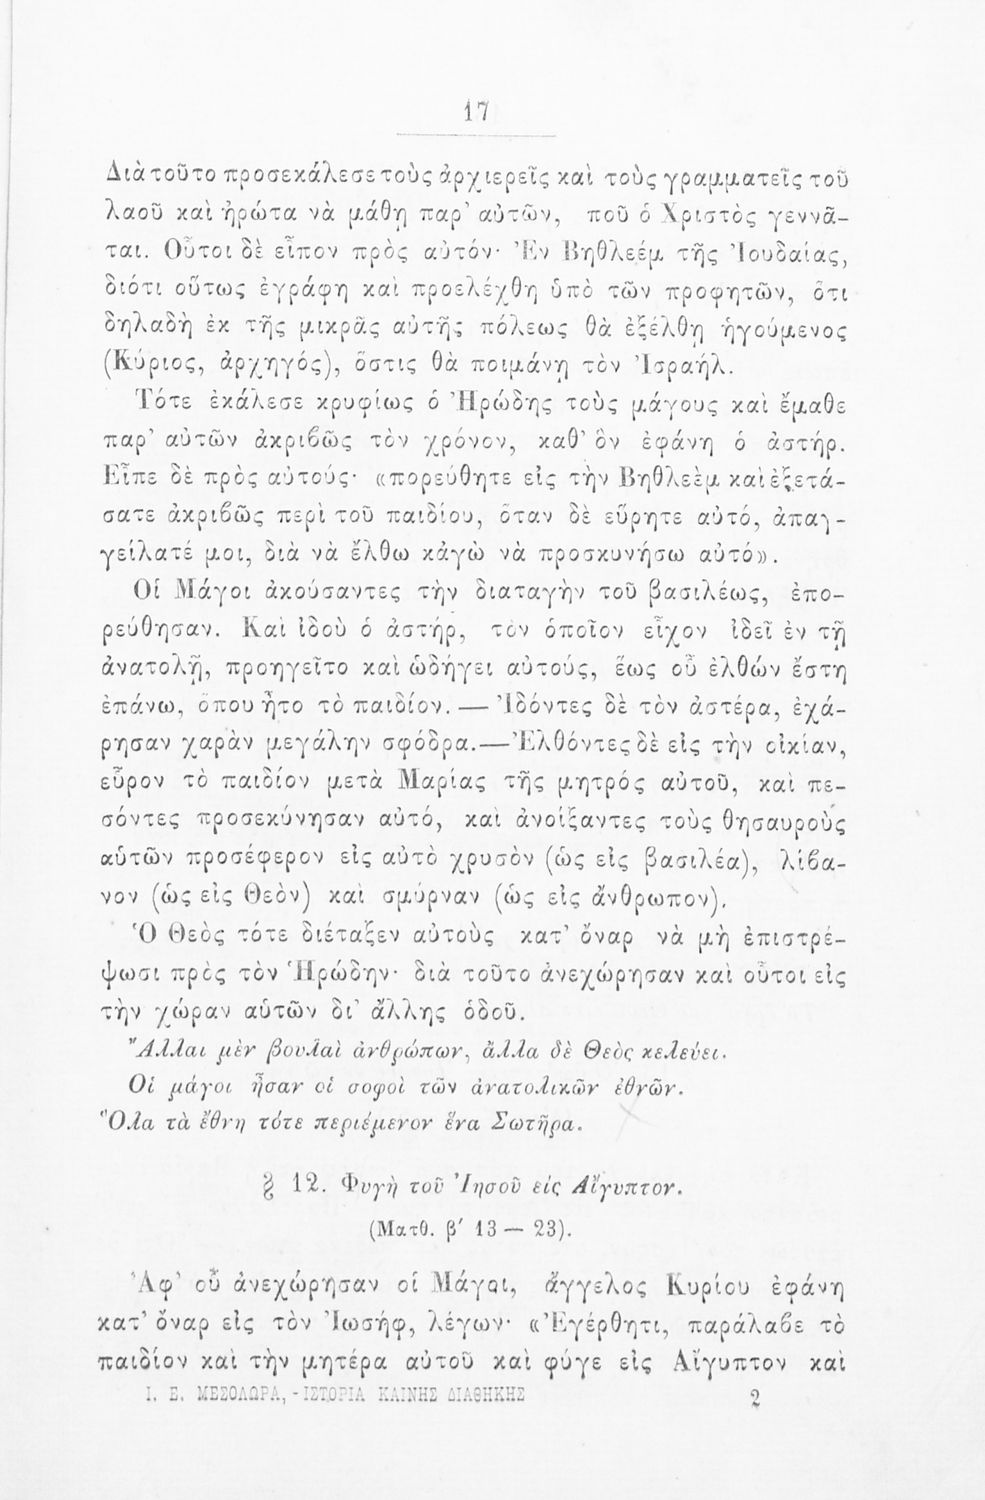 17
Διὰ τοῦτο προσεκάλεσε τοὺς ἀρχιερεῖς καὶ τοὺς γραμματεῖς τοῦ
λαοῦ καὶ ἠρώτα νὰ μάθῃ παρ' αὐτῶν, ποῦ ὁ Χριστὸς γεννᾶ-
ται. Οὗτοι δὲ εἶπον πρὸς αὐτόν· Ἐν Βηθλεέμ τῆς Ἰουδαίας,
διότι οὕτως ἐγράφη καὶ προελέχθη ὑπὸ τῶν προφητῶν, ὅτι
δηλαδὴ ἐκ τῆς μικρᾶς αὐτῆς πόλεως θὰ ἐξέλθῃ ἡγούμενος
(Κύριος, ἀρχηγός), ὅστις θὰ ποιμάνῃ τὸν Ἰσραήλ.
Τότε ἐκάλεσε κρυφίως ὁ Ἡρώδης τοὺς μάγους καὶ ἔμαθε
παρ' αὐτῶν ἀκριβῶς τὸν χρόνον, καθ' ὃν ἐφάνη ὁ ἀστήρ.
Εἶπε δὲ πρὸς αὐτούς· «πορεύθητε εἰς τὴν Βηθλεὲμ καὶ ἐξετά-
σατε ἀκριβῶς περὶ τοῦ παιδίου, ὅταν δὲ εὕρητε αὐτό, ἀπαγ-
γείλατέ μοι, διὰ νὰ ἔλθω κἀγὼ νὰ προσκυνήσω αὐτό».
Οἱ Μάγοι ἀκούσαντες τὴν διαταγὴν τοῦ βασιλέως, ἐπο-
ρεύθησαν. Καὶ ἰδοὺ ὁ ἀστήρ, τὸν ὁποῖον εἶχον ἰδεῖ ἐν τῇ
ἀνατολῇ, προηγεῖτο καὶ ὡδήγει αὐτούς, ἕως οὗ ἐλθών ἔστη
ἐπάνω, ὅπου ἦτο τὸ παιδίον. — Ἰδόντες δὲ τὸν ἀστέρα, ἐχά-
ρησαν χαρὰν μεγάλην σφόδρα.—Ἐλθόντες δὲ εἰς τὴν οἰκίαν,
εὗρον τὸ παιδίον μετὰ Μαρίας τῆς μητρός αὐτοῦ, καὶ πε-
σόντες προσεκύνησαν αὐτό, καὶ ἀνοίξαντες τοὺς θησαυροὺς
αὑτῶν προσέφερον εἰς αὐτὸ χρυσὸν (ὡς εἰς βασιλέα), λίβα-
νον (ὡς εἰς Θεὸν) καὶ σμύρναν (ὡς εἰς ἄνθρωπον).
Ὁ Θεὸς τότε διέταξεν αὐτοὺς κατ' ὄναρ νὰ μὴ ἐπιστρέ-
ψωσι πρὸς τὸν Ἡρώδην· διὰ τοῦτο ἀνεχώρησαν καὶ οὗτοι εἰς
τὴν χώραν αὑτῶν δι' ἄλλης ὁδοῦ.
Ἄλλαι μὲν βουλαὶ ἀνθρώπων, ἄλλα δὲ Θεὸς κελεύει.
Οἱ μάγοι ἦσαν οἱ σοφοὶ τῶν ἀνατολικῶν ἐθνῶν.
Ὅλα τὰ ἔθνη τότε περιέμενον ἕνα Σωτῆρα.
§ 12. Φυγὴ τοῦ Ἰησοῦ εἰς Αἴγυπτον.
(Ματθ. β' 13 — 23).
Ἀφ' οὗ ἀνεχώρησαν οἱ Μάγοι, ἄγγελος Κυρίου ἐφάνη
κατ' ὄναρ εἰς τὸν Ἰωσήφ, λέγων· «Ἐγέρθητι, παράλαβε τὸ
παιδίον καὶ τὴν μητέρα αὐτοῦ καὶ φύγε εἰς Αἴγυπτον καὶ
Ι. Ε. ΜΕΣΟΛΩΡΑ,-ΙΣΤΟΡΙΑ ΚΑΙΝΗΣ ΔΙΑΘΗΚΗΣ 2